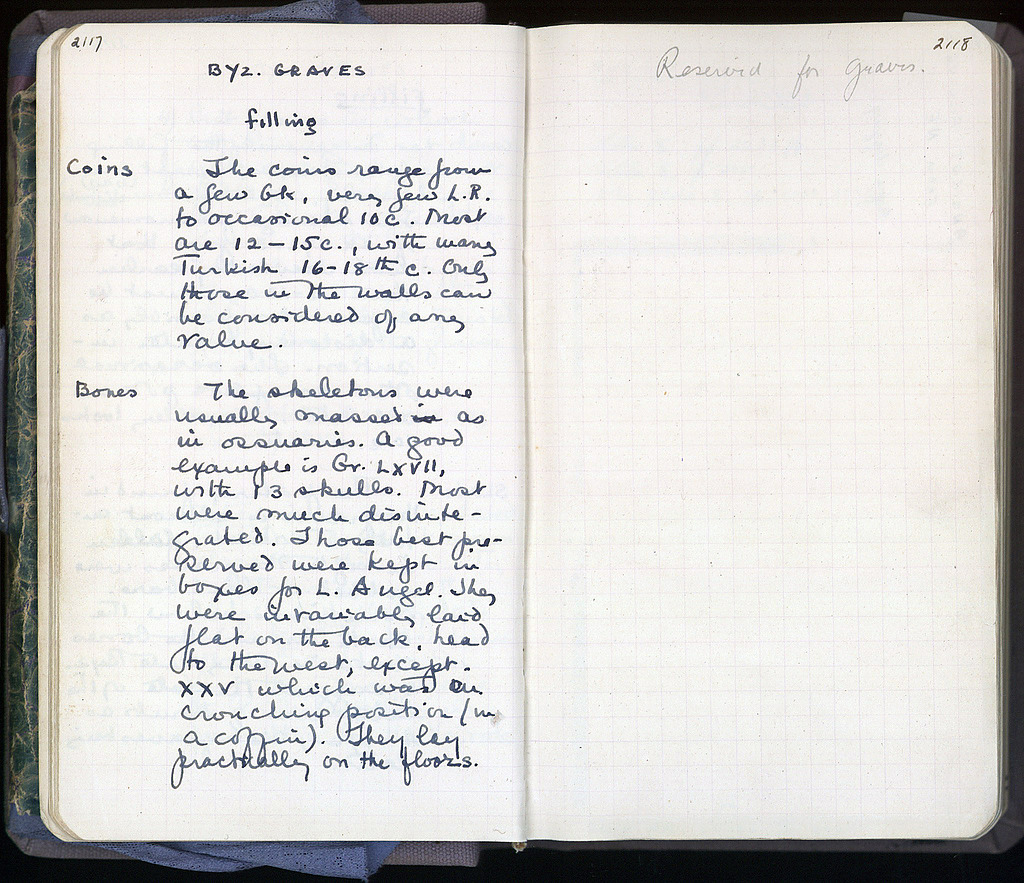 2117
BYZ. GRAVES
filling
Coins The coins range from
a few Gk, very few L.R.
to occasional 10 c. Most
are 12-15 c., with many
Turkish 16-18th c. Only
those in the walls can
be considered of any
value.
Bones The skeletons were
usually massed in as
in ossuaries. A good
example is Gr. LXVII,
with 13 skulls. Most
were much disinte-
grated. Those best pre-
served were kept in
boxes for L. Angel. They
were invariably laid
flat on the back, head
to the west, except.
XXV which was in
crouching position (in
a coffin). They lay
practically on the floors.
2118
Reserved for Graves.